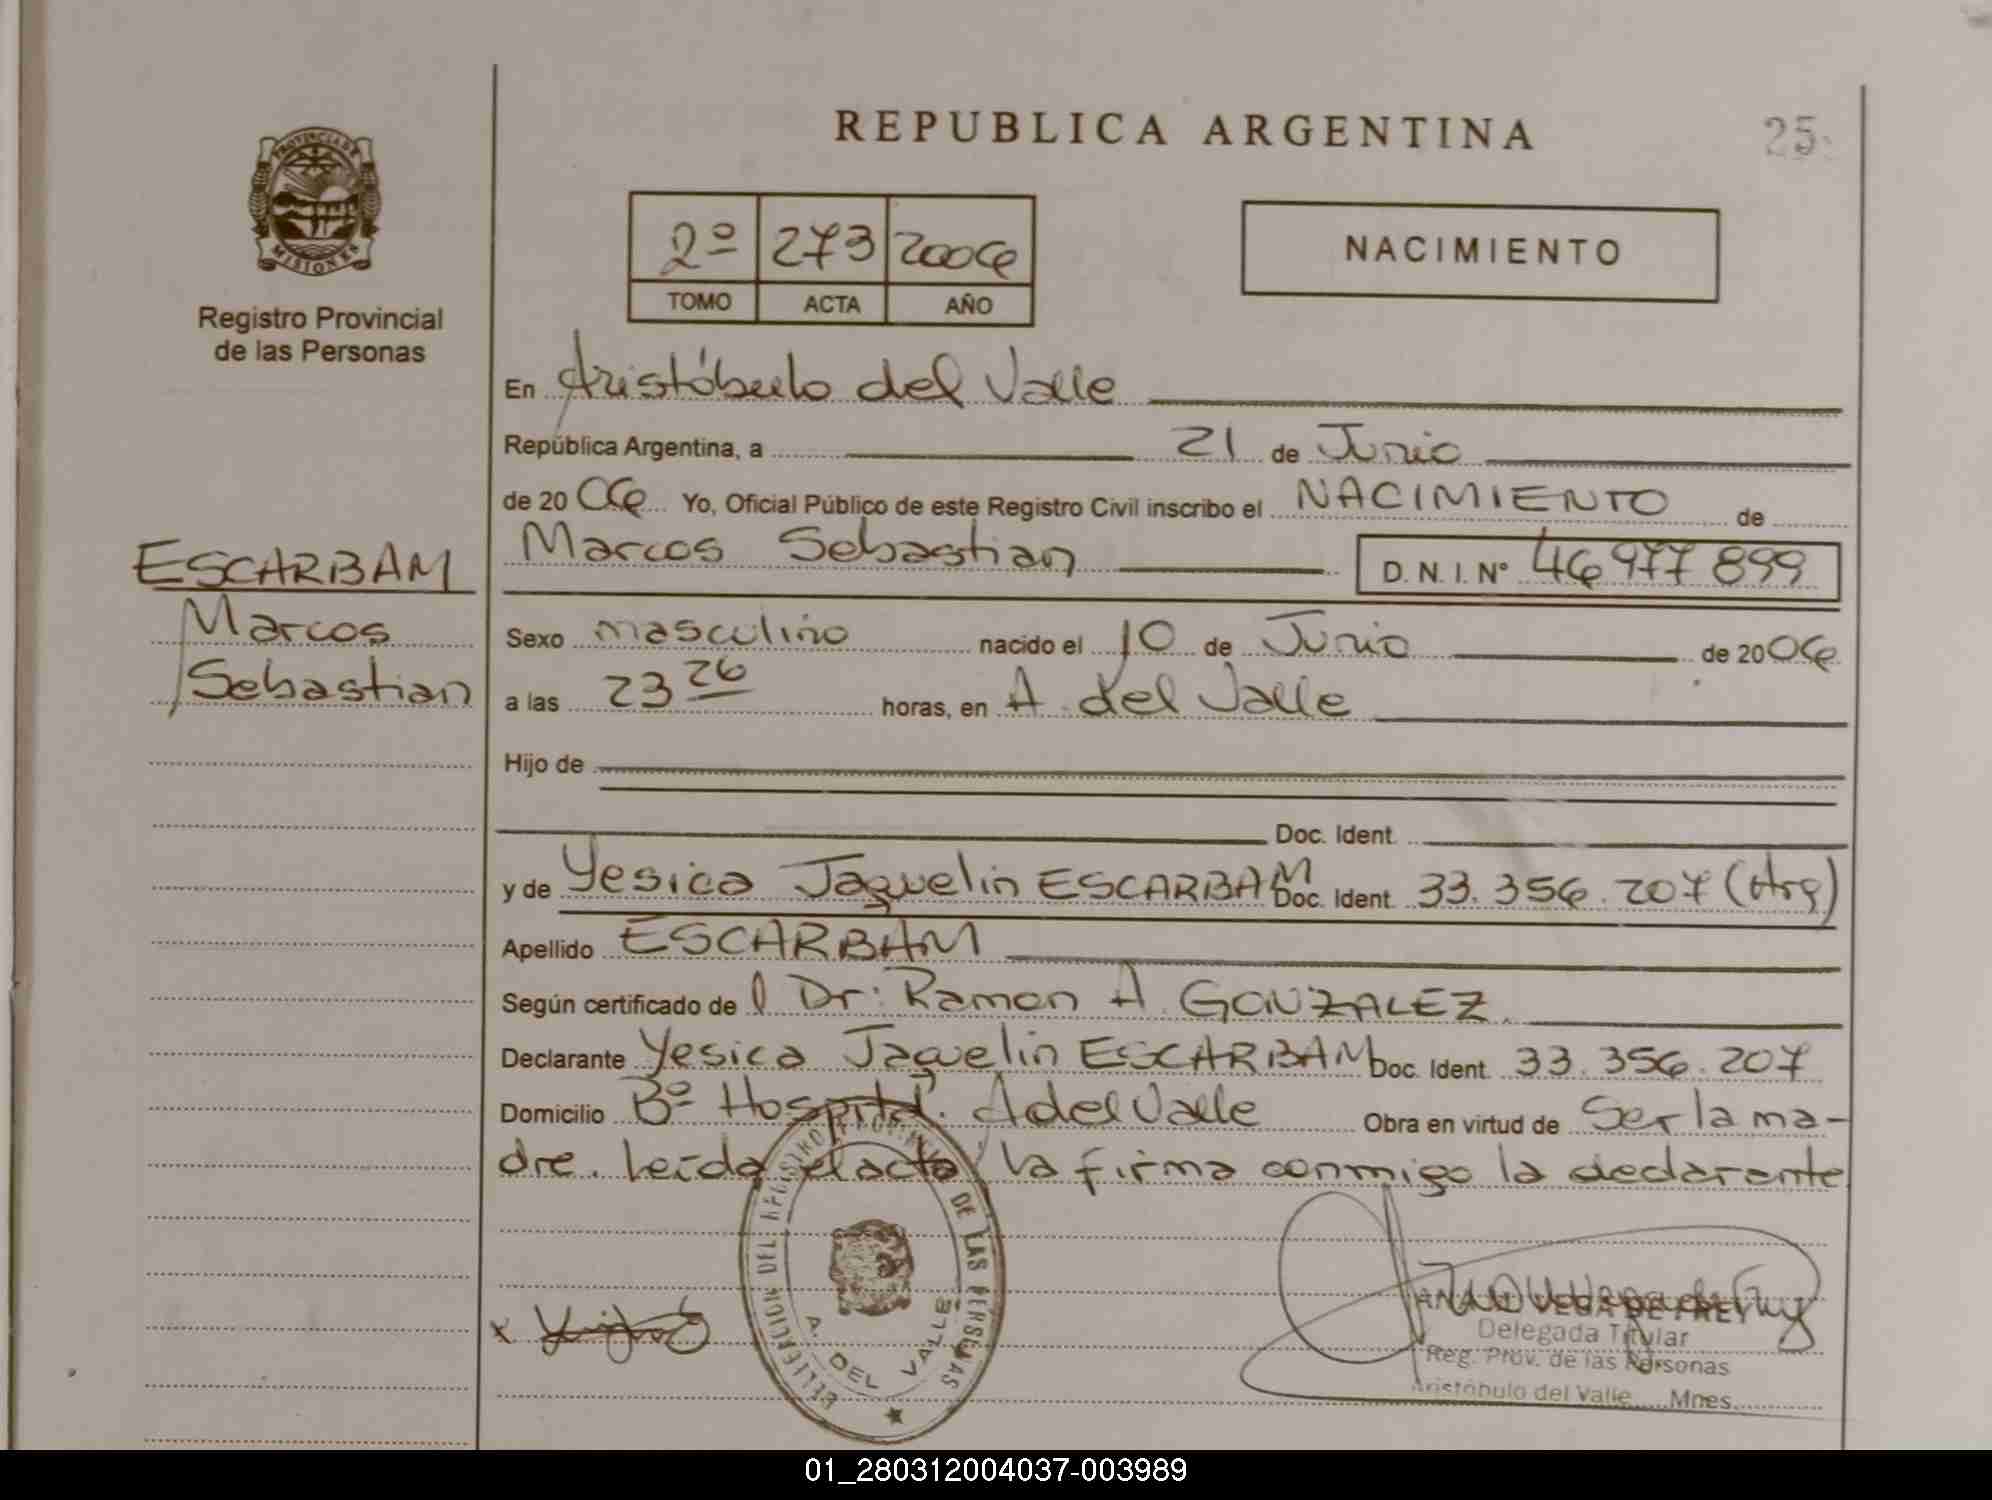 REPUBLICA ARGENTINA
25
PROVINCIA DE
MISIONES
Registro Provincial
de las Personas
2º 273 2006
TOMO ACTA AÑO
NACIMIENTO
En Aristóbulo del Valle
República Argentina, a 21 de Junio
de 2006 Yo, Oficial Público de este Registro Civil inscribo el NACIMIENTO de
Marcos Sebastian D. N. I. Nº 46977899
ESCARBAM
Marcos
Sebastian
Sexo masculino nacido el 10 de Junio de 2006
a las 23 26 horas, en A. del Valle
Hijo de
Doc. Ident.
y de Yesica Jaquelin ESCARBAM Doc. Ident. 33.356.207 (Arg)
Apellido ESCARBAM
Según certificado del Dr: Ramon A. GONZALEZ
Declarante Yesica Jaquelin ESCARBAM Doc. Ident. 33.356.207
Domicilio Bº Hospital. A del Valle Obra en virtud de Ser la ma-
dre. Leída el acta, la firma conmigo la declarante
DEL REGISTRO DE LAS PERSONAS
A. DEL VALLE
Delegada Titular
Reg. Prov. de las Personas
Aristóbulo del Valle Mnes.
01_280312004037-003989